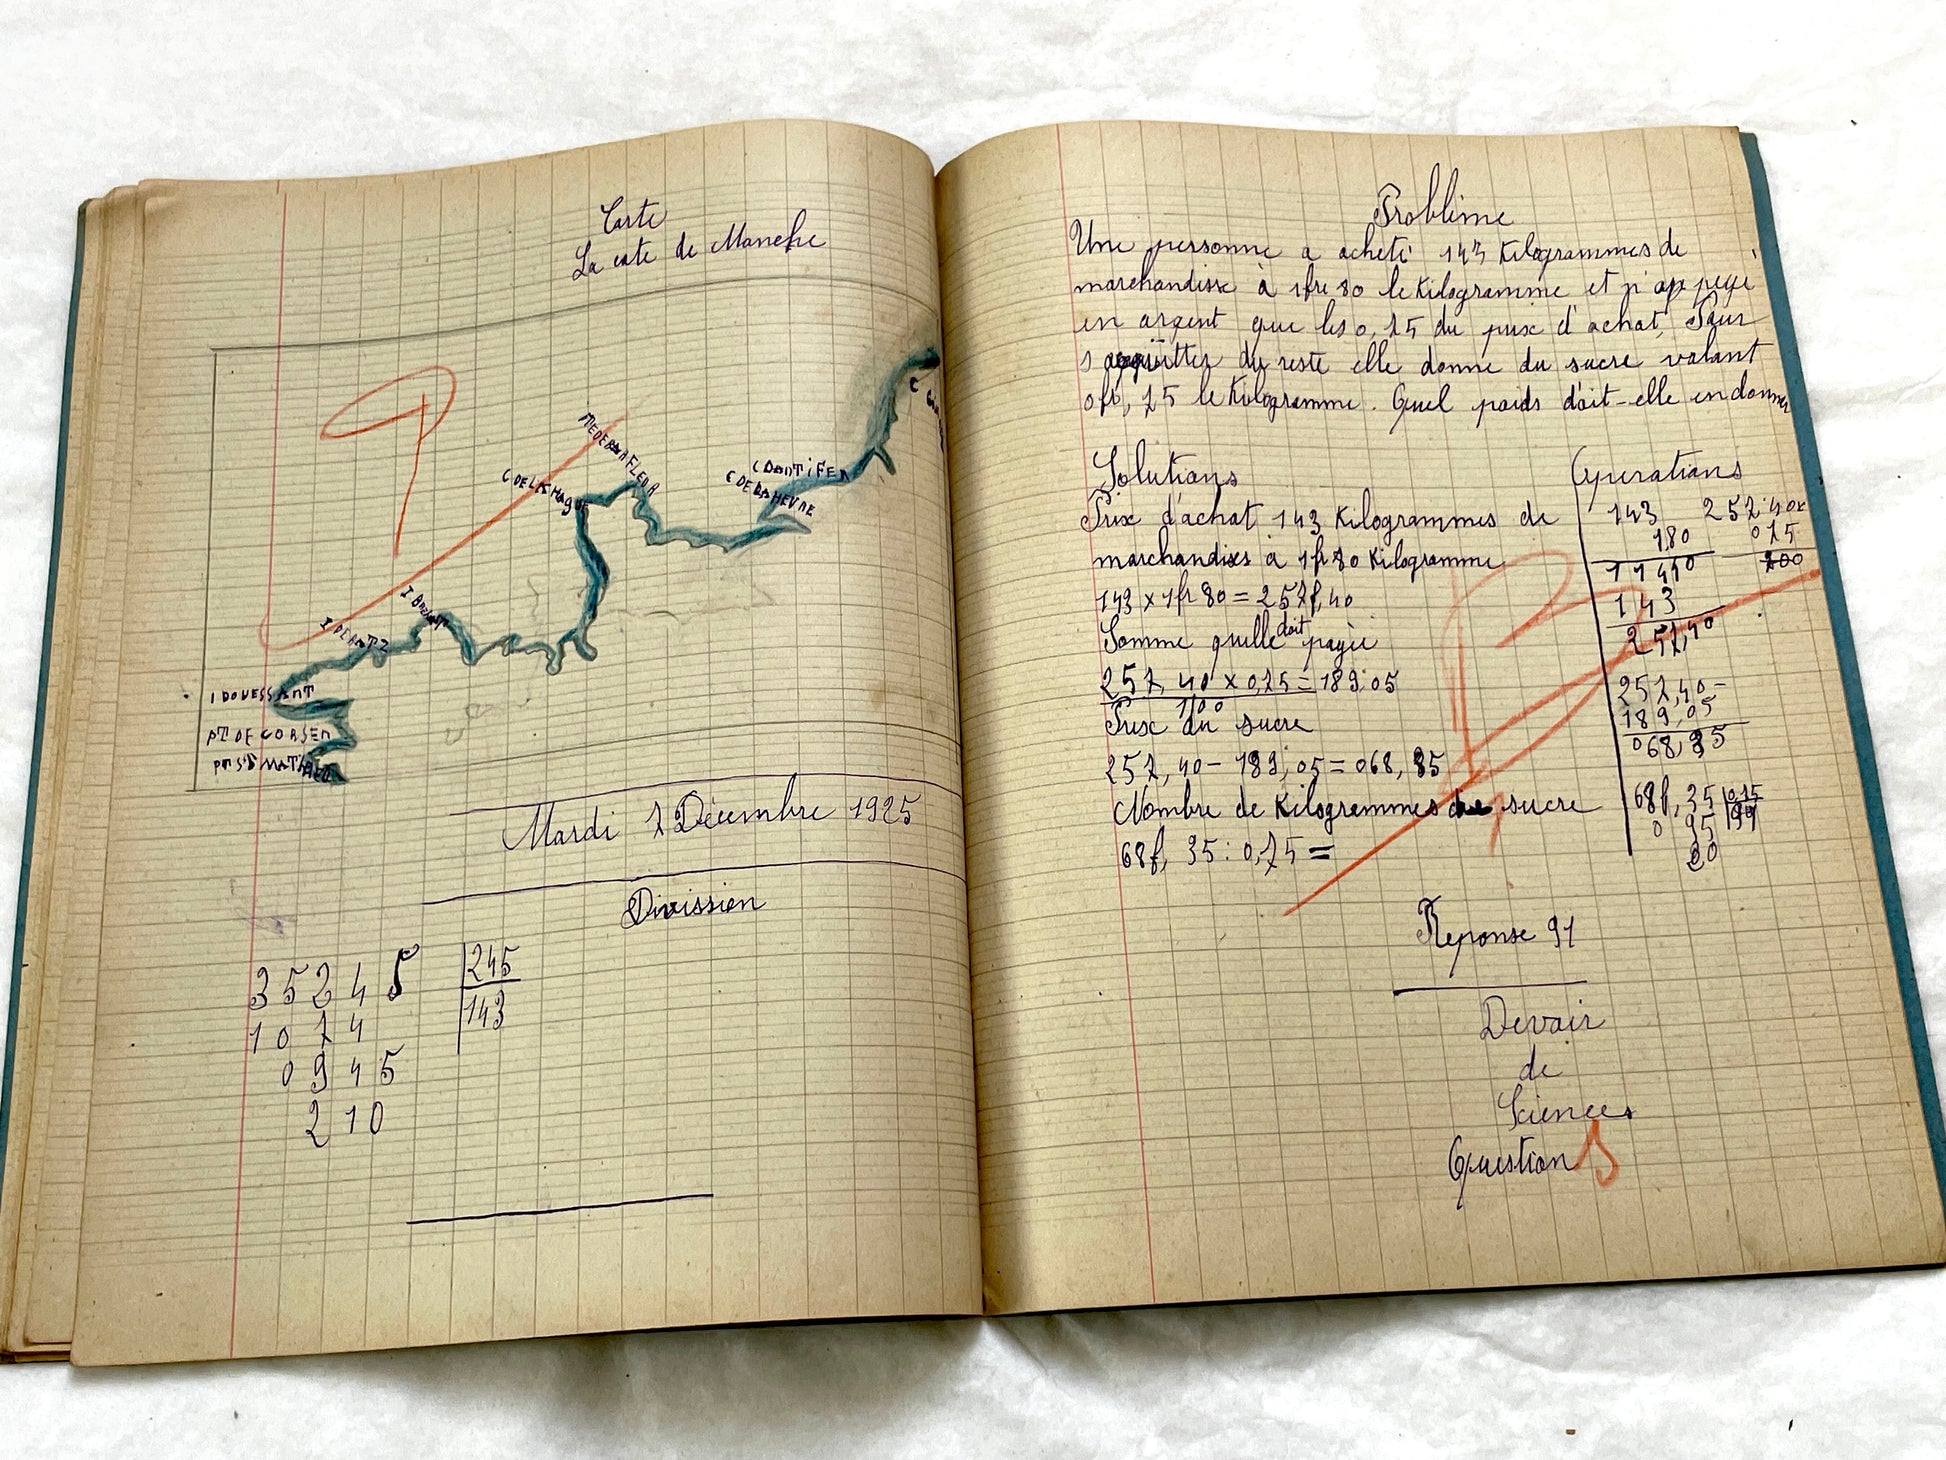 Carte
La cote de Manche
MEDEBARFLEUR
C DE LA HAGUE
C D'ANTIFER
C DE LA HEVRE
I BREHAT
I DE BATZ
I D OUESSANT
PT DE CORSEN
PT ST MATHIEU
Mardi 7 Décembre 1925
Divission
35245 245
1074 143
0945
210
Problème
Une personne a acheté 143 Kilogrammes de
marchandise à 1fr 80 le Kilogramme et n'a payé
en argent que les 0,75 du prix d'achat. Pour
s acquitter du reste elle donne du sucre valant
0fr,75 le Kilogramme. Quel poids doit-elle en donner
Solutions
Prix d'achat 143 Kilogrammes de
marchandises à 1fr 80 Kilogramme
143 x 1fr 80 = 257f,40
Somme quelle doit payée
257,40 x 0,75 = 189,05
100
Prix du sucre
257,40 - 189,05 = 068,35
Nombre de Kilogrammes de sucre
68f, 35 : 0,75 =
Opérations
143
180
11440
143
257,40
257,40x
075
257,40-
189,05
068,35
68f, 35 0,75
0 95 91
20
Reponse 91
Devoir
de
Sciences
Questions